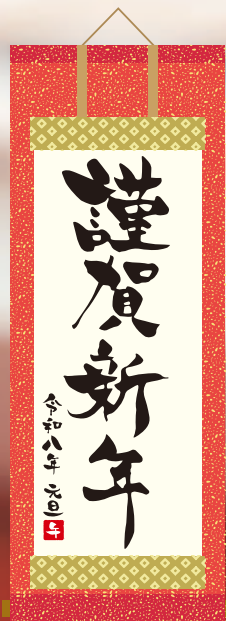 謹賀新年
令和八年 元旦
午